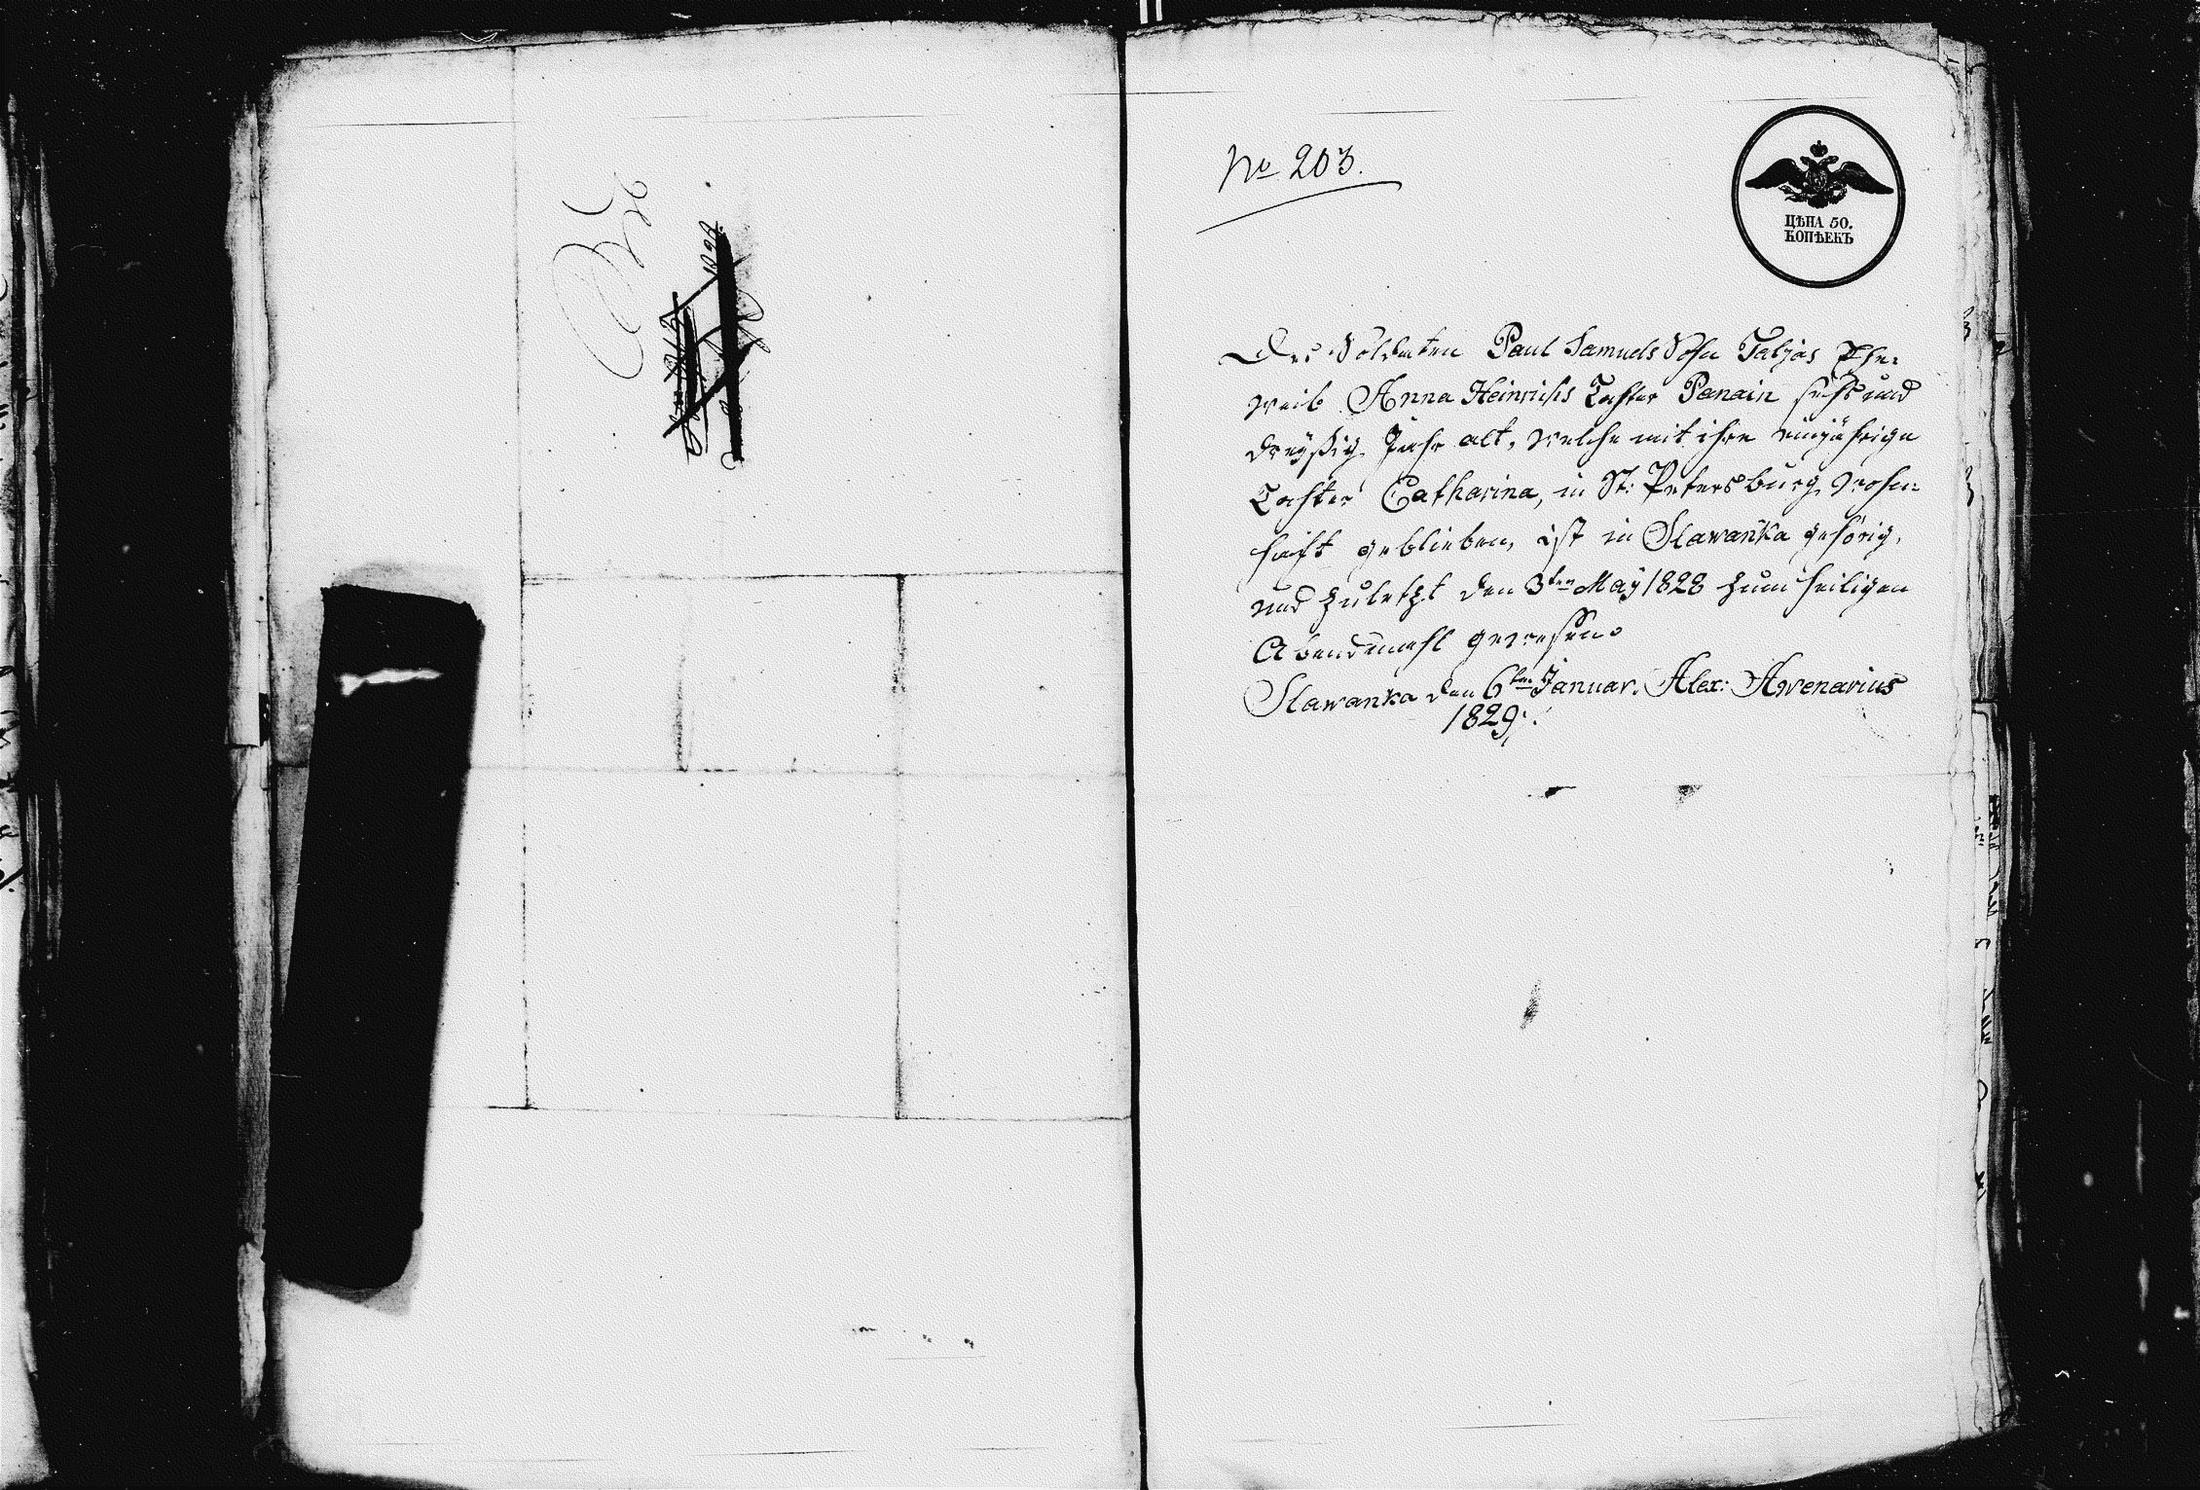 No 203.
ЦѢНА 50.
КОПѢЕКЪ
Des Soldaten Paul Samuels Sohn Taljas Ehe-
weib Anna Heinrichs Tochter Panain sechs und
dreyßig Jahr alt, welche mit ihre einjährige
Tochter Catharina, in St: Petersburg wohn-
haft geblieben, ist in Slawanka gehörig,
und zuletzt den 3ten May 1828 zum heiligen
Abendmahl gewesen.
Slawanka den 6ten Januar. Alex: Awenarius
1829.